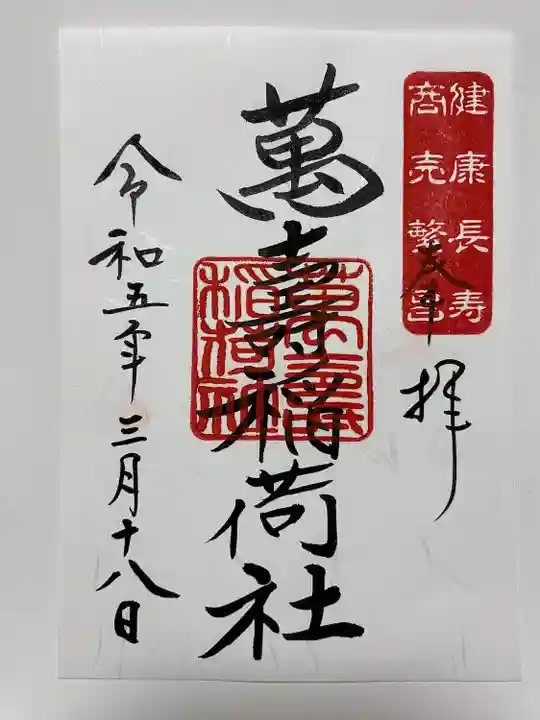 健康長寿
商売繁昌
奉拝
萬壽稲荷社
令和五年三月十八日